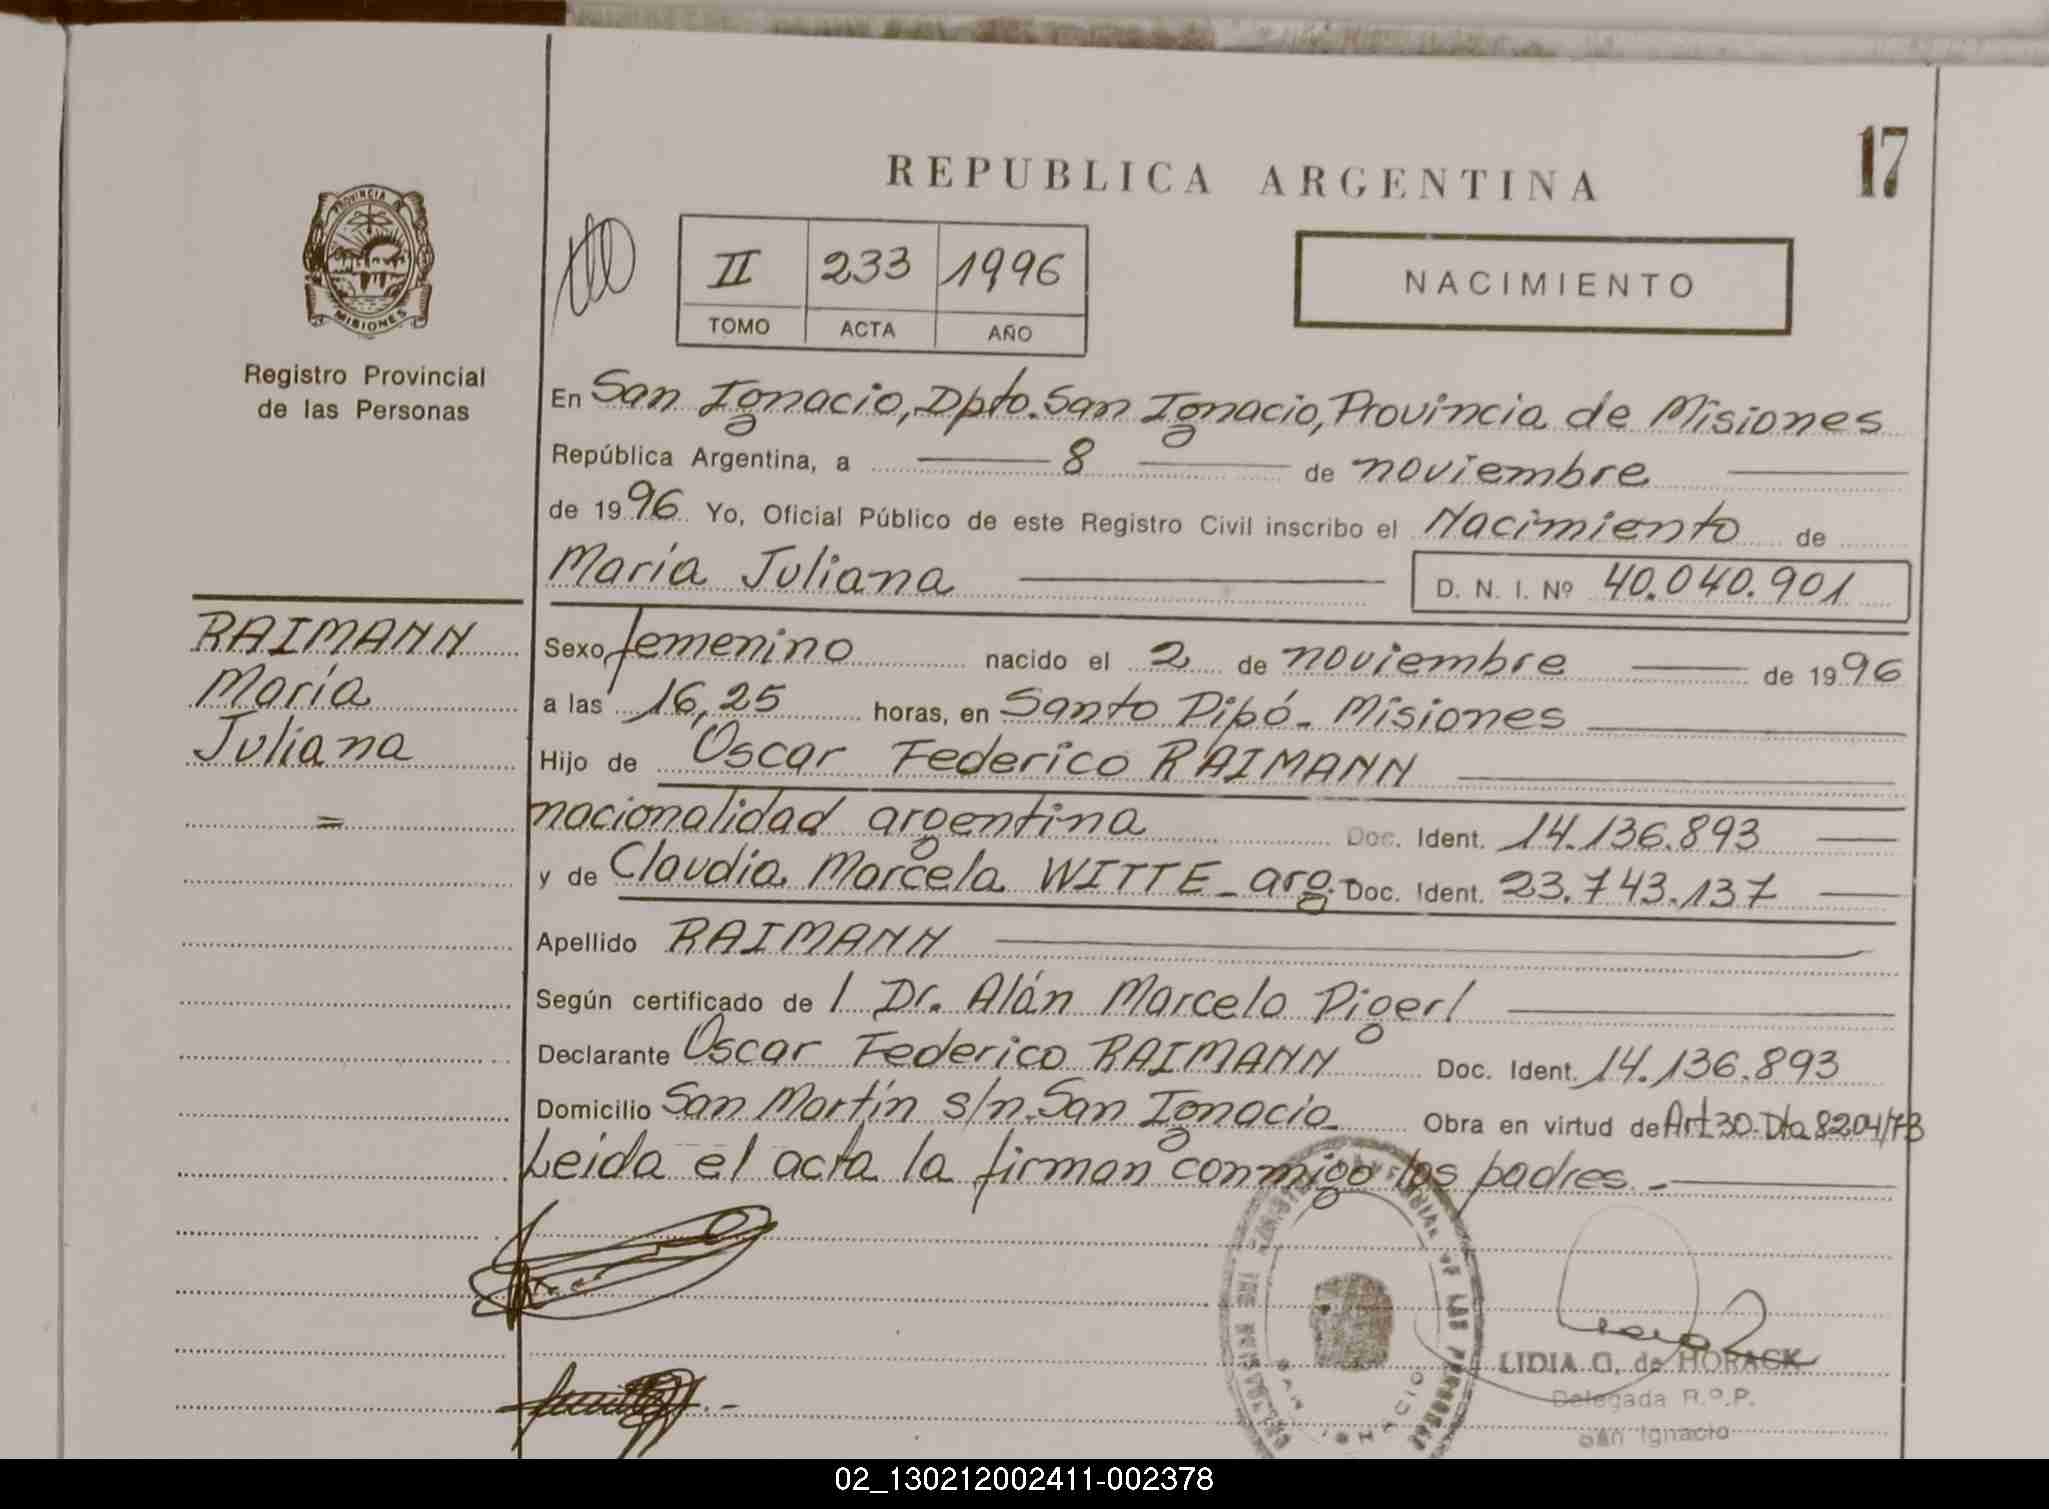 REPUBLICA ARGENTINA
17
PROVINCIA DE
MISIONES
Registro Provincial
de las Personas
II 233 1996
TOMO ACTA AÑO
NACIMIENTO
En San Ignacio, Dpto. San Ignacio, Provincia de Misiones
República Argentina, a 8 de noviembre
de 1996 Yo, Oficial Público de este Registro Civil inscribo el Nacimiento de
María Juliana D. N. I. Nº 40.040.901
RAIMANN
María
Juliana
=
Sexo femenino nacido el 2 de noviembre de 1996
a las 16,25 horas, en Santo Pipó - Misiones
Hijo de Oscar Federico RAIMANN
nacionalidad argentina Doc. Ident. 14.136.893
y de Claudia Marcela WITTE - arg. - Doc. Ident. 23.743.137
Apellido RAIMANN
Según certificado de l Dr. Alán Marcelo Pigerl
Declarante Oscar Federico RAIMANN Doc. Ident. 14.136.893
Domicilio San Martín s/n. San Ignacio Obra en virtud de Art 30. Dto 8204/73
Leida el acta la firman conmigo los padres. -
LIDIA G. de HORACK
Delegada R.P.P.
San Ignacio
02_130212002411-002378